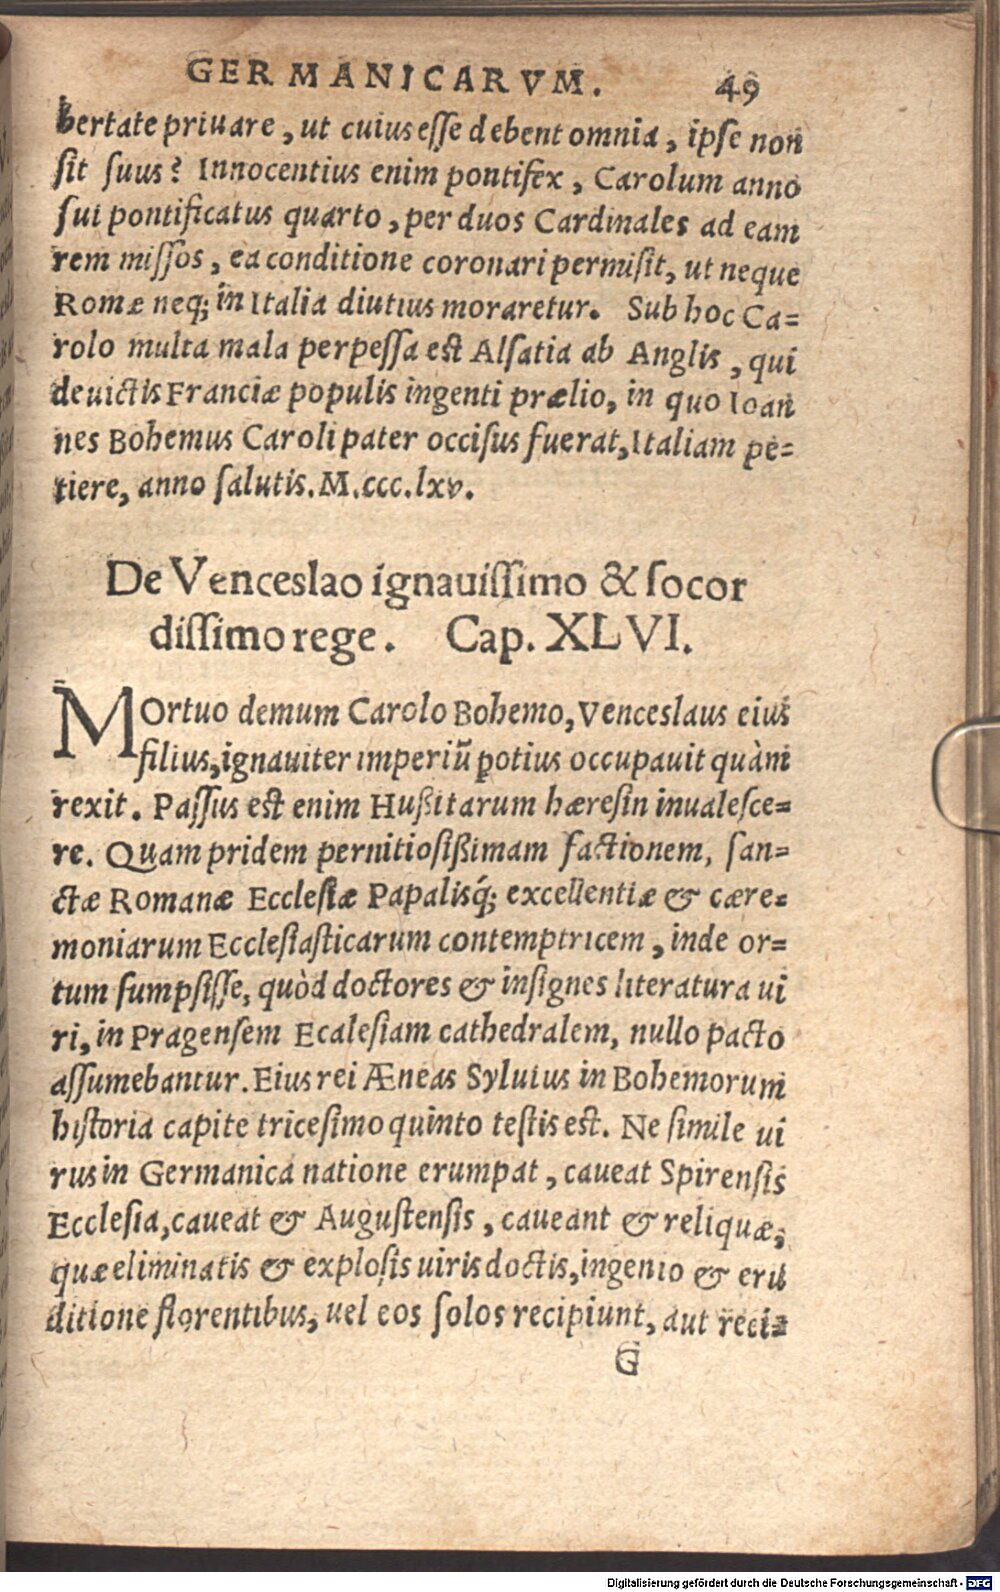 GERMANICARVM. 49
bertate priuare, ut cuius esse debent omnia, ipse non
sit suus? Innocentius enim pontifex, Carolum anno
sui pontificatus quarto, per duos Cardinales ad eam
rem missos, ea conditione coronari permisit, ut neque
Romæ neq; in Italia diutius moraretur. Sub hoc Ca=
rolo multa mala perpessa est Alsatia ab Anglis, qui
deuictis Franciæ populis ingenti prælio, in quo Ioan
nes Bohemus Caroli pater occisus fuerat, Italiam pe=
tiere, anno salutis. M.ccc.lxv.
De Venceslao ignauissimo & socor
dissimo rege. Cap. XLVI.
MOrtuo demum Carolo Bohemo, Venceslaus eius
filius, ignauiter imperiū potius occupauit quàm
rexit. Passus est enim Hußitarum hæresin inualesce=
re. Quam pridem pernitiosißimam factionem, san=
ctæ Romanæ Ecclesiæ Papalisq́; excellentiæ & cære=
moniarum Ecclesiasticarum contemptricem, inde or=
tum sumpsisse, quòd doctores & insignes literatura ui
ri, in Pragensem Ecalesiam cathedralem, nullo pacto
assumebantur. Eius rei Æneas Syluius in Bohemorum
historia capite tricesimo quinto testis est. Ne simile ui
rus in Germanica natione erumpat, caueat Spirensis
Ecclesia, caueat & Augustensis, caueant & reliquæ,
quæ eliminatis & explosis uiris doctis, ingenio & eru
ditione florentibus, uel eos solos recipiunt, aut reci=
G
Digitalisierung gefördert durch die Deutsche Forschungsgemeinschaft - DFG